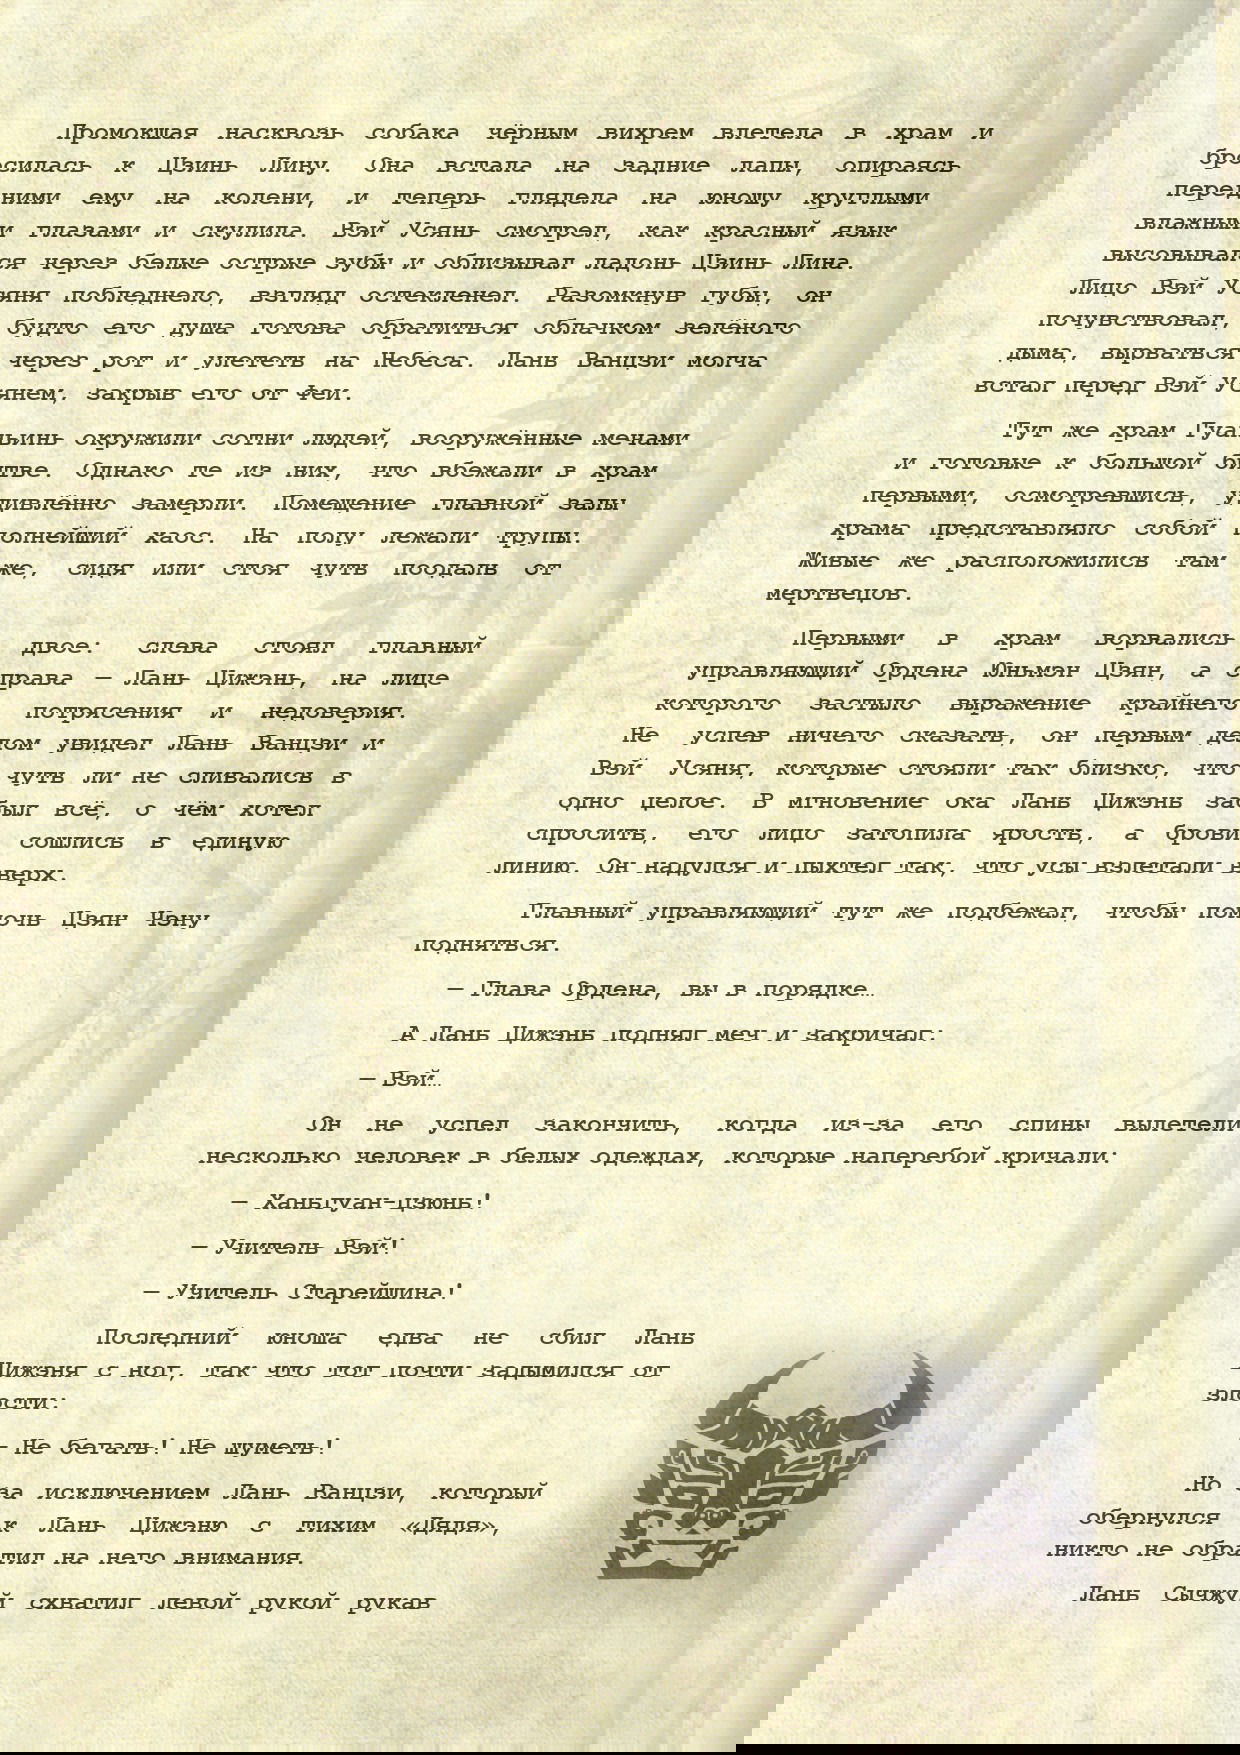 Промокшая насквозь собака чёрным вихрем влетела в храм и
бросилась к Цзинь Лину. Она встала на задние лапы, опираясь
передними ему на колени, и теперь глядела на юношу круглыми
влажными глазами и скулила. Вэй Усянь смотрел, как красный язык
высовывался через белые острые зубы и облизывал ладонь Цзинь Лина.
Лицо Вэй Усяня побледнело, взгляд остекленел. Разомкнув губы, он
почувствовал, будто его душа готова обратиться облачком зелёного
дыма, вырваться через рот и улететь на Небеса. Лань Ванцзи молча
встал перед Вэй Усянем, закрыв его от Феи.
Тут же храм Гуаньинь окружили сотни людей, вооружённые мечами
и готовые к большой битве. Однако те из них, что вбежали в храм
первыми, осмотревшись, удивлённо замерли. Помещение главной залы
храма представляло собой полнейший хаос. На полу лежали трупы.
Живые же расположились там же, сидя или стоя чуть поодаль от
мертвецов.
Первыми в храм ворвались двое: слева стоял главный
управляющий Ордена Юньмэн Цзян, а справа — Лань Цижэнь, на лице
которого застыло выражение крайнего потрясения и недоверия.
Не успев ничего сказать, он первым делом увидел Лань Ванцзи и
Вэй Усяня, которые стояли так близко, что чуть ли не сливались в
одно целое. В мгновение ока Лань Цижэнь забыл всё, о чём хотел
спросить, его лицо затопила ярость, а брови сошлись в единую
линию. Он надулся и пыхтел так, что усы взлетали вверх.
Главный управляющий тут же подбежал, чтобы помочь Цзян Чэну
подняться.
— Глава Ордена, вы в порядке…
А Лань Цижэнь поднял меч и закричал:
— Вэй…
Он не успел закончить, когда из-за его спины вылетели
несколько человек в белых одеждах, которые наперебой кричали:
— Ханьгуан-цзюнь!
— Учитель Вэй!
— Учитель Старейшина!
Последний юноша едва не сбил Лань
Цижэня с ног, так что тот почти задымился от
злости:
— Не бегать! Не шуметь!
Но за исключением Лань Ванцзи, который
обернулся к Лань Цижэню с тихим «Дядя»,
никто не обратил на него внимания.
Лань Сычжуй схватил левой рукой рукав